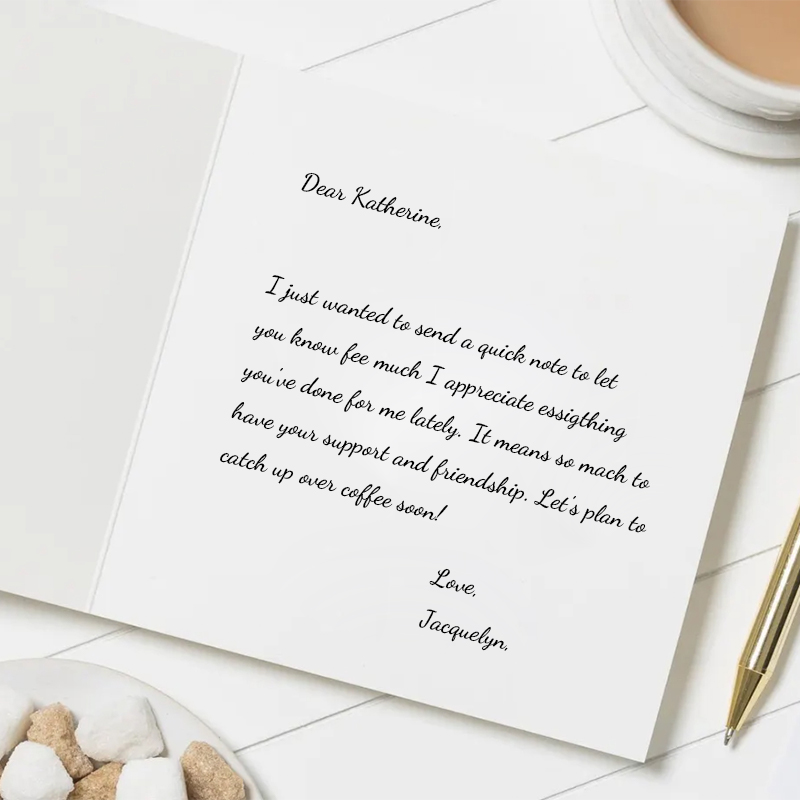 Dear Katherine,
I just wanted to send a quick note to let
you know fee much I appreciate essigthing
you've done for me lately. It means so mach to
have your support and friendship. Let's plan to
catch up over coffee soon!
Love,
Jacquelyn,